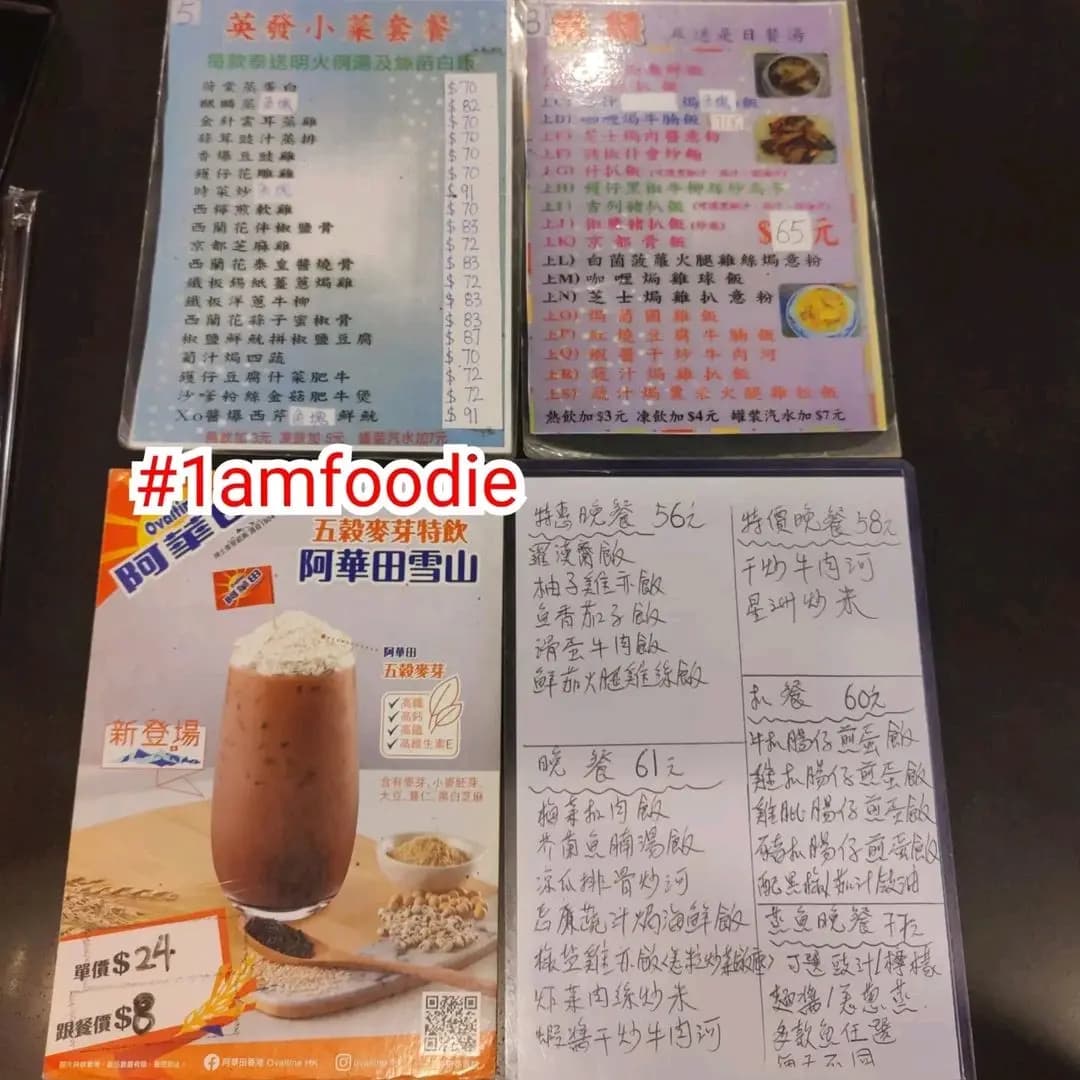 5
英發小菜套餐
每款奉送明火例湯及絲苗白飯
荷棠蒸蛋白 $70
$82
金針雲耳蒸雞 $70
蒜茸豉汁蒸排 $70
香爆豆豉雞 $70
鑊仔花雕雞 $70
時菜炒 $91
西檸煎軟雞 $70
西蘭花伴椒鹽骨 $83
京都芝麻雞 $72
西蘭花泰皇醬燒骨 $83
鐵板錫紙薑蔥焗雞 $72
鐵板洋蔥牛柳 $83
西蘭花蒜子蜜椒骨 $83
椒鹽鮮魷拼椒鹽豆腐 $87
葡汁焗四蔬 $70
鑊仔豆腐什菜肥牛 $72
沙嗲粉絲金菇肥牛煲 $72
Xo醬爆西芹 塊 鮮魷 $91
熱飲加3元 凍飲加5元 罐裝汽水加7元
是日餐湯
上D) 咖喱焗牛腩飯
上E) 芝士焗肉醬意粉
上G) 什扒飯
上H) 鑊仔黑椒牛柳絲炒烏冬
上I) 吉列豬扒飯
上J) 椒鹽豬扒飯
上K) 京都骨飯
$65元
上L) 白菌菠蘿火腿雞絲焗意粉
上M) 咖喱焗雞球飯
上N) 芝士焗雞扒意粉
上O) 焗葡國雞飯
上P) 紅燒豆腐牛腩飯
上Q) 蝦醬干炒牛肉河
上R) 蔬汁焗雞扒飯
上S) 蔬汁焗粟米火腿雞粒飯
熱飲加$3元 凍飲加$4元 罐裝汽水加$7元
#1amfoodie
Ovaltine
阿華田
五穀麥芽特飲
阿華田雪山
阿華田
阿華田
五穀麥芽
高纖
高鈣
高鐵
高維生素E
新登場
含有麥芽、小麥胚芽、
大豆、薏仁、黑白芝麻
單價$24
跟餐價$8
阿華田香港 Ovaltine HK
Ovaltine HK
特惠晚餐 56元
羅漢齋飯
柚子雞亦飯
魚香茄子飯
滑蛋牛肉飯
鮮茄火腿雞絲飯
特價晚餐 58元
干炒牛肉河
星洲炒米
扒餐 60元
牛扒腸仔煎蛋飯
雞扒腸仔煎蛋飯
雞肶腸仔煎蛋飯
豬扒腸仔煎蛋飯
配黑椒/茄汁/豉油
晚餐 61元
梅菜扣肉飯
芥蘭魚腩湯飯
涼瓜排骨炒河
忌廉蔬汁焗海鮮飯
炸菜肉絲炒米
蝦醬干炒牛肉河
蒸魚晚餐
可選豉汁/檸檬
麵醬/羌蔥蒸
多款魚任選